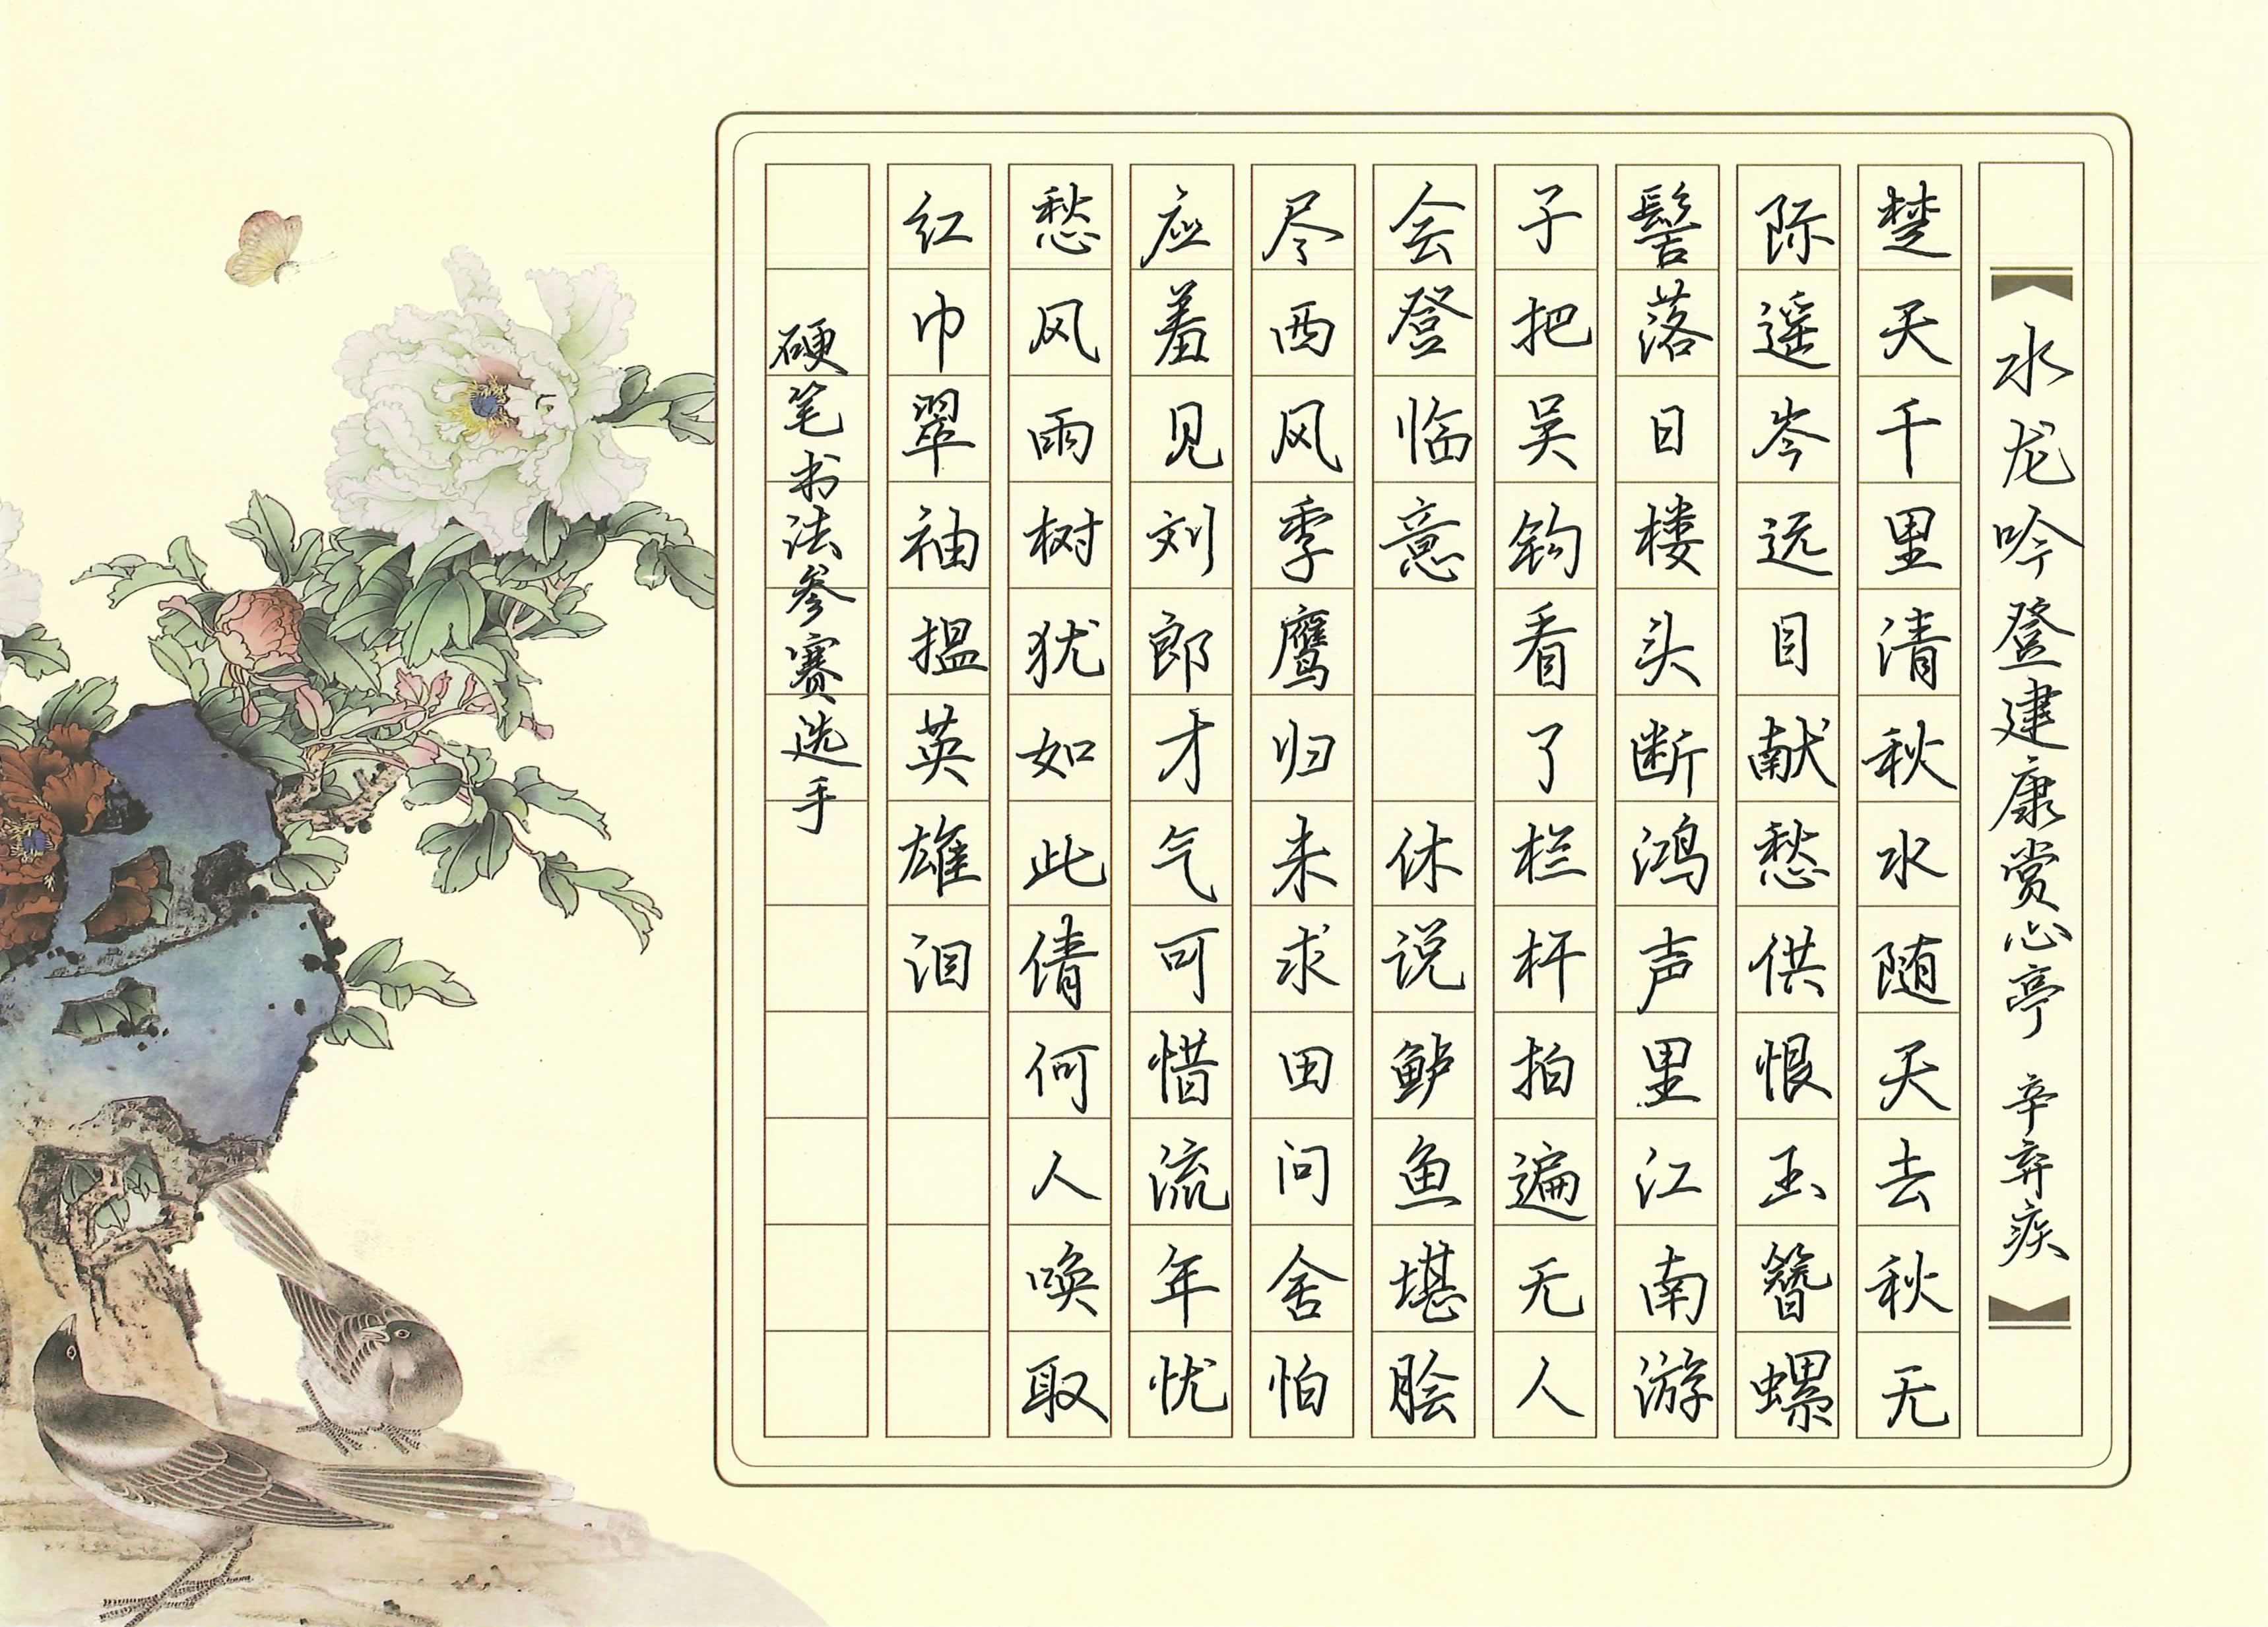 水龙吟登建康赏心亭 辛弃疾
楚天千里清秋水随天去秋无
际遥岑远目献愁供恨玉簪螺
髻落日楼头断鸿声里江南游
子把吴钩看了栏杆拍遍无人
会登临意 休说鲈鱼堪脍
尽西风季鹰归未求田问舍怕
应羞见刘郎才气可惜流年忧
愁风雨树犹如此倩何人唤取
红巾翠袖搵英雄泪
硬笔书法参赛选手